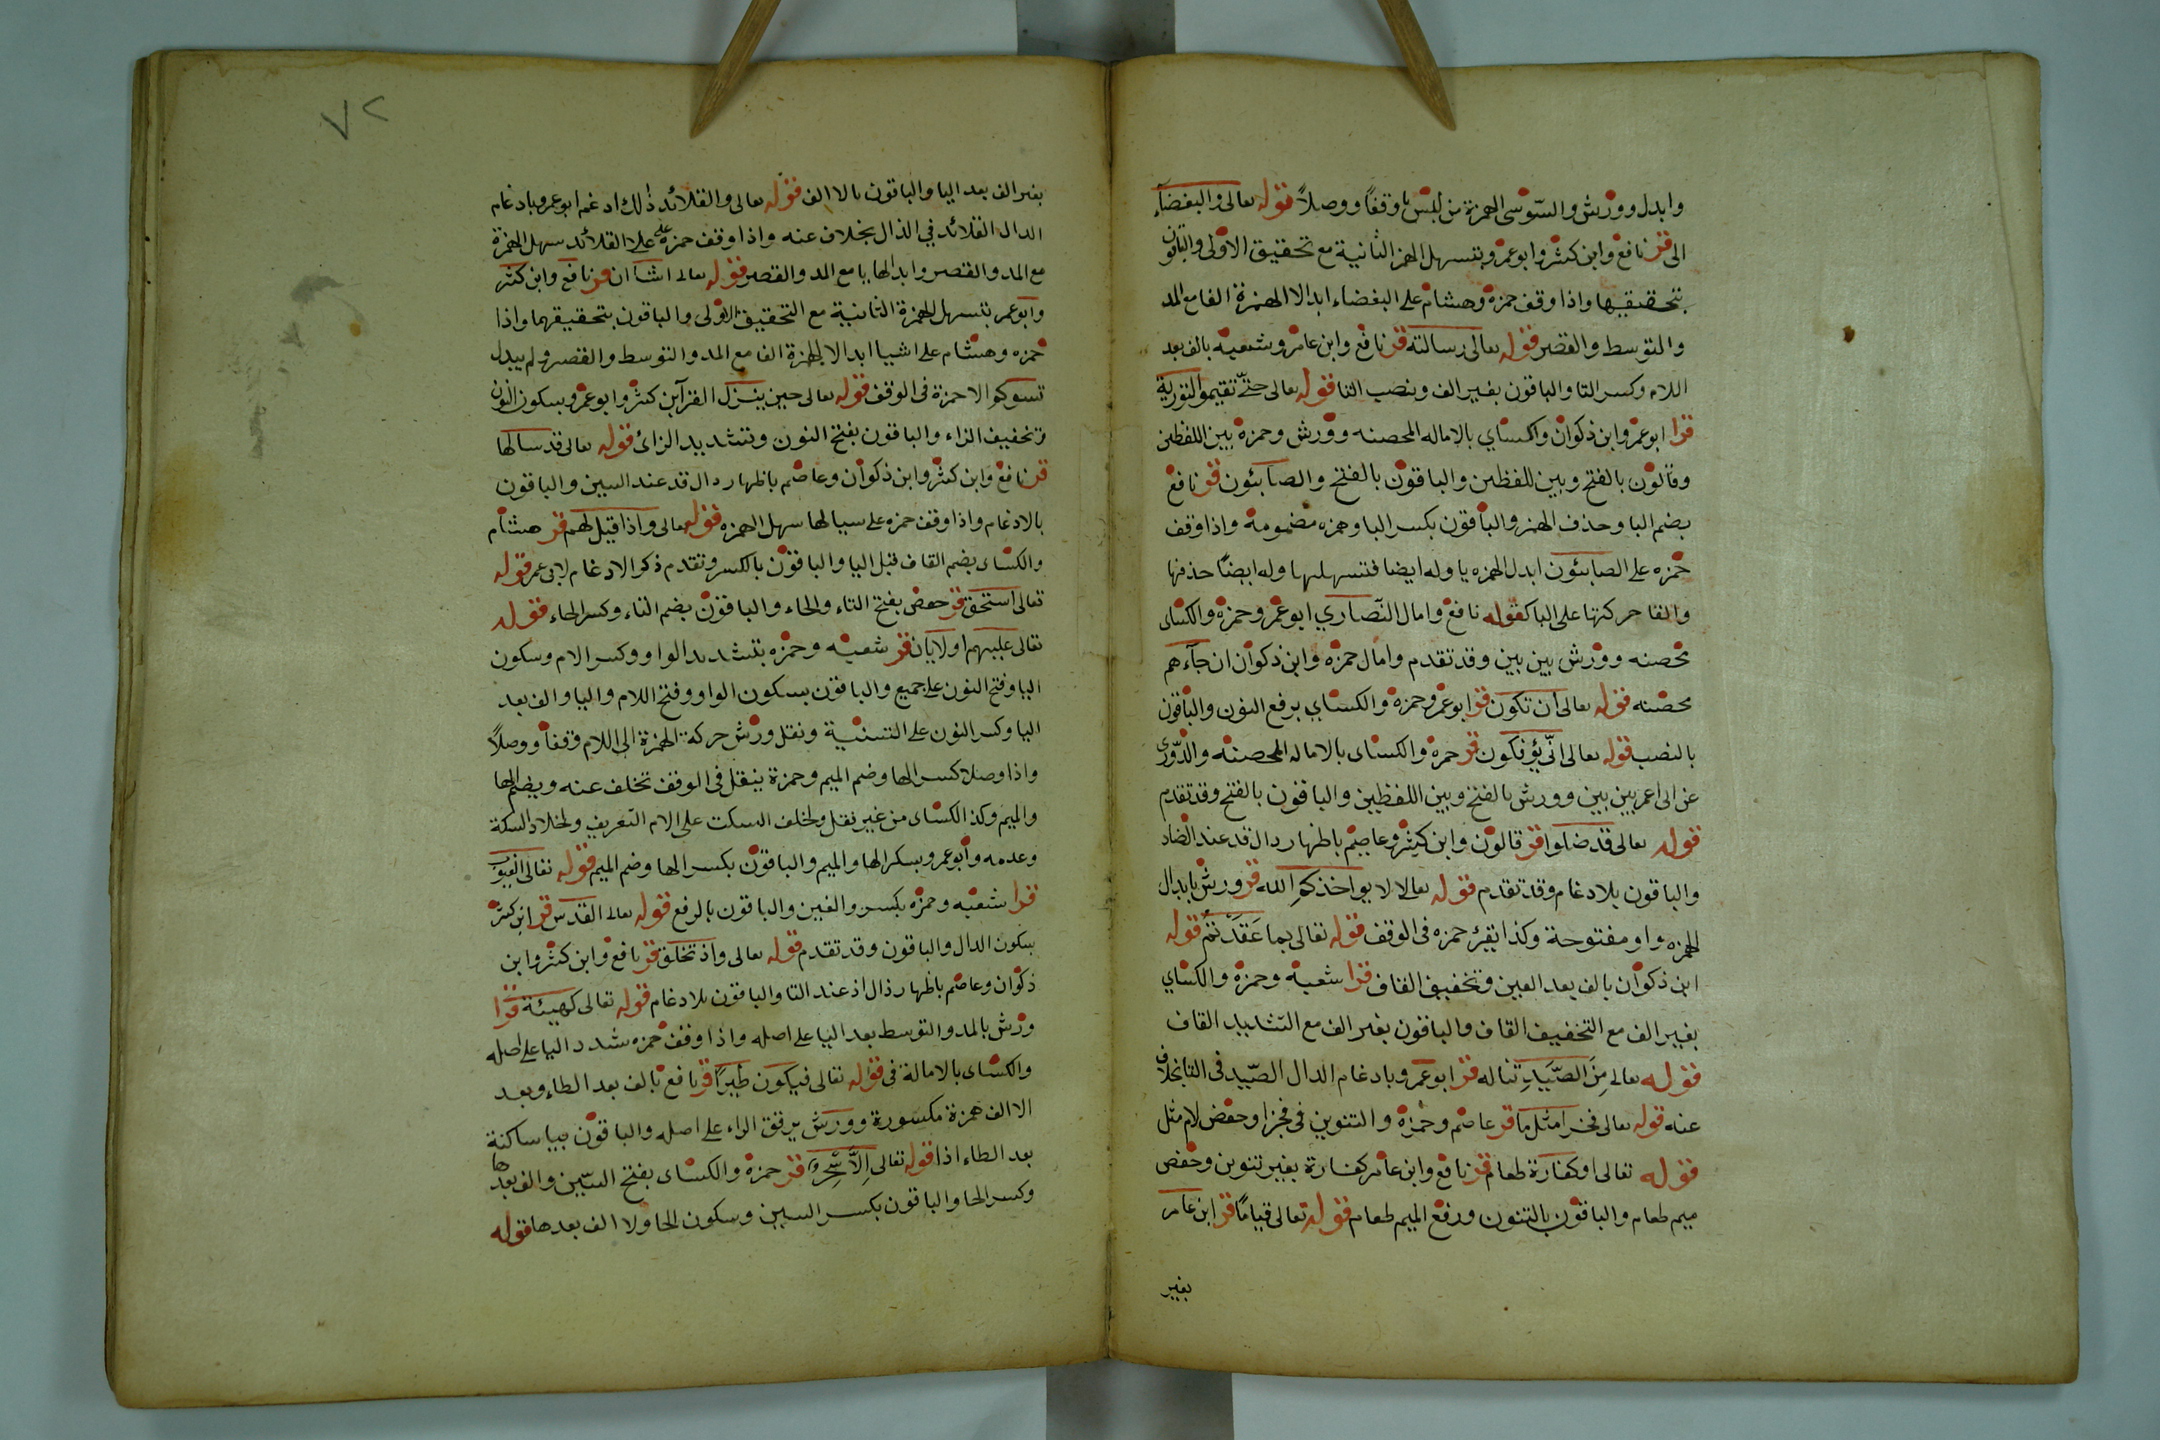 وابدل وورش والسوسى الهمزة من لبئس يا وقفاً ووصلاً قوله تعالى والبغضآء
الى قر نافع وابن كثير وابو عمرو بتسهيل الهمز الثانية مع تحقيق الاولى والباقون
بتحقيقها واذا وقف حمزة وهشام على البغضاء ابدلا الهمزة الفا مع المد
والتوسط والقصر قوله تعالى رسالته قر نافع وابن عامر وشعبة بالف بعد
اللام وكسر التا والباقون بغير الف ونصب التا قوله تعالى حتّى تقيموا التورية
قرا ابو عمرو ابن ذكوان والكسائي بالاماله المحصنه وورش وحمزة بين اللفظين
وقالون بالفتح وبين للفظين والباقون بالفتح والصابئون قر نافع
بضم البا وحذف الهمز والباقون بكسر البا وهمزه مضمومة واذا وقف
حمزه على الصابئون ابدل الهمزه يا وله ايضا فتسهيلها وله ايضاً حذفها
والقا حركتها على البا كقوله نافع وامال النّصاري ابو عمرو وحمزة والكسائى
محصنه وورش بين بين وقد تقدم وامال حمزة وابن ذكوان ان جآءهم
محصنه قوله تعالى ان تكون قرا ابو عمرو وحمزة والكسائي برفع النون والباقون
بالنصب قوله تعالى انّى يؤفكون قر حمزة والكسائى بالاماله المحصنه والدّورى
عن ابى اعمر بين بين وورش بالفتح وبين اللفظين والباقون بالفتح وقد تقدم
قوله تعالى قد ضلوا قر قالون وابن كثير وعاصم باظهار دال قد عند الضاد
والباقون بلادغام وقد تقدم قوله تعالى لا يواخذكم الله قر ورش بابدال
الهمزه واو مفتوحة وكذا يقرء حمزه فى الوقف قوله تعالى بما عَقَدَتُمُ قوله
ابن ذكوان بالف بعد العين وتخفيف القاف قرا شعبة وحمزة والكسائي
بغير الف مع التخفيف القاف والباقون بغير الف مع التشديد القاف
قوله تعالى مِنَ الصّيَدِ تناله قر ابو عمرو بادغام الدال الصّيد فى التا بخلاف
عنه قوله تعالى فجزا مثل ما قر عاصم وحمزة والتنوين فى فجزا وخفض لام مثل
قوله تعالى او كفارة طعام قر نافع وابن عامر كفارة بغير تنوين وخفض
ميم طعام والباقون بالتنون ورفع الميم طعام قوله تعالى قياماً قر ابن عامر
بغير
٧٢
بغير الف بعد اليا والباقون بالا الف قوله تعالى والقلائد ذٰلك ادغم ابو عمرو بادغام
الدال القلائد في الذال بخلاف عنه واذا وقف حمزة على علا القلائد سهل الهمزة
مع المد والقصر وابدالها يا مع المد والقصر قوله تعالى اشآ ان قر نافع وابن كثير
وابو عمر بتسهل الهمزة الثانية مع التحقيق الاولى والباقون بتحقيقهما واذا
حمزه وهشام على اشيا ابدالا الهمزة الف مع المد والتوسط والقصر ولم يبدل
تسوكم الا حمزة فى الوقف قوله تعالى حين ينزل القرآن ابن كثير وابو عمرو بسكون النون
وتخفيف الزاء والباقون بفتح النون وتشديد الزائ قوله تعالى قد سالها
قر نافع وابن كثير وابن ذكوان وعاصم باظهار دال قد عند السين والباقون
بالادغام واذا وقف حمزه على سيالها سهل الهمزه قوله تعالى واذا قيل لهم قر هشام
والكسائى بضم القاف قبل اليا والباقون بالكسر وتقدم ذكر الادغام لابى عمر قوله
تعالى استحق قر حفص بفتح التاء والحاء والباقون بضم التاء وكسر الحاء قوله
تعالى عليهم اولايان قر شعبة وحمزه بتشديد الواو وكسر الام وسكون
اليا وفتح النون على جميع والباقون بسكون الواو وفتح اللام واليا والف بعد
اليا وكسر النون على التسنية ونقل ورش حركة الهمزة الى اللام وقفاً ووصلاً
واذا وصلا كسر الها وضم الميم وحمزة ينقل فى الوقف تخلف عنه ويضم الها
والميم وكذ الكسائى من غير نقل ولخلف السكت على الام التعريف ولخلاد السكة
وعدمه وابو عمرو بسكر الها والميم والباقون بكسر الها وضم الميم قوله تعالى الغيوب
قرا شعبه وحمزه بكسر والغين والباقون بالرفع قوله تعالى القدس قر ابن كثير
بسكون الدال والباقون وقد تقدم قوله تعالى واذ تخلق قر نافع وابن كثير وابن
ذكوان وعاصم باظهار ذال اذ عند التا والباقون بلادغام قوله تعالى كهيئة قرا
ورش بالمد والتوسط بعد اليا على اصله واذا وقف حمزه شدد اليا على اصله
والكسائى بالامالة فى قوله تعالى فيكون طيراً قر نافع بالف بعد الطاء وبعد
الالف همزة مكسورة وورش يرقق الراء على اصله والباقون بيا ساكنة
بعد الطاء اذا قوله تعالى اِلَّا سِحْرٌ قر حمزة والكسائى بفتح السّين والف بعدها
وكسر الحا والباقون بكسر السين وسكون الحا ولا الف بعدها قوله